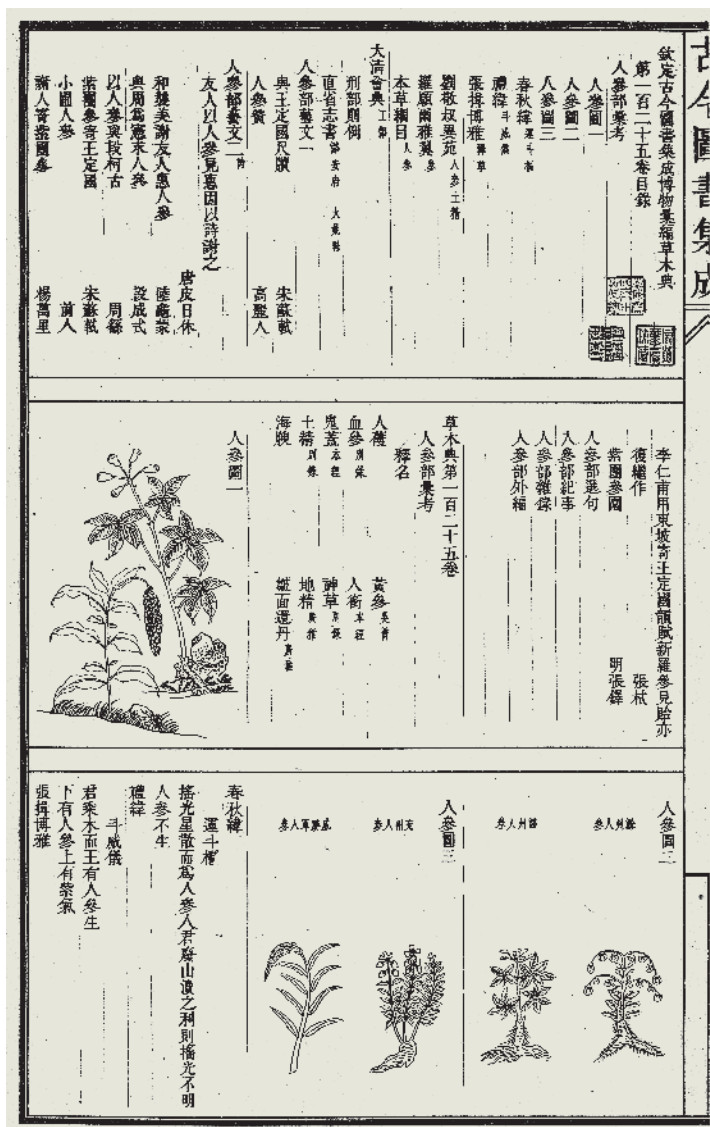 古今圖書集成
欽定古今圖書集成博物彙編草木典
第一百二十五卷目錄
人參部彙考
人參圖一
人參圖二
人參圖三
春秋緯 運斗樞
禮緯 斗威儀
張揖博雅 釋草
劉敬叔異苑 人參 土精
羅願爾雅翼 人參
本草綱目 人參
大清會典 工部
刑部則例
直省志書 潞安府
人參部藝文一
與王定國尺牘 宋蘇軾
人參讚 高麗人
人參部藝文二 詩
友人以人參見惠因以詩謝之
唐皮日休
和襲美謝友人惠人參 陸龜蒙
與周爲憲求人參 段成式
以人參與段柯古 周繇
紫團參寄王定國 宋蘇軾
小圃人參 前人
謝人寄紫團參 楊萬里
李仁甫用東坡寄王定國韻賦新羅參見貽亦
復繼作 張栻
紫團參園 明張鐸
人參部選句
人參部紀事
人參部雜錄
人參部外編
草木典第一百二十五卷
人參部彙考
釋名
人蓡 黃參 吳普
血參 別錄 人銜 本經
鬼蓋 本經 神草 別錄
土精 別錄 地精 廣雅
海腴 皺面還丹 廣雅
人參圖一
人參圖二
潞州人參
滁州人參
人參圖三
兗州人參
威勝軍人參
春秋緯
運斗樞
搖光星散而爲人參人君廢山瀆之利則搖光不明
人參不生
禮緯
斗威儀
君乘木而王有人參生
下有人參上有紫氣
張揖博雅